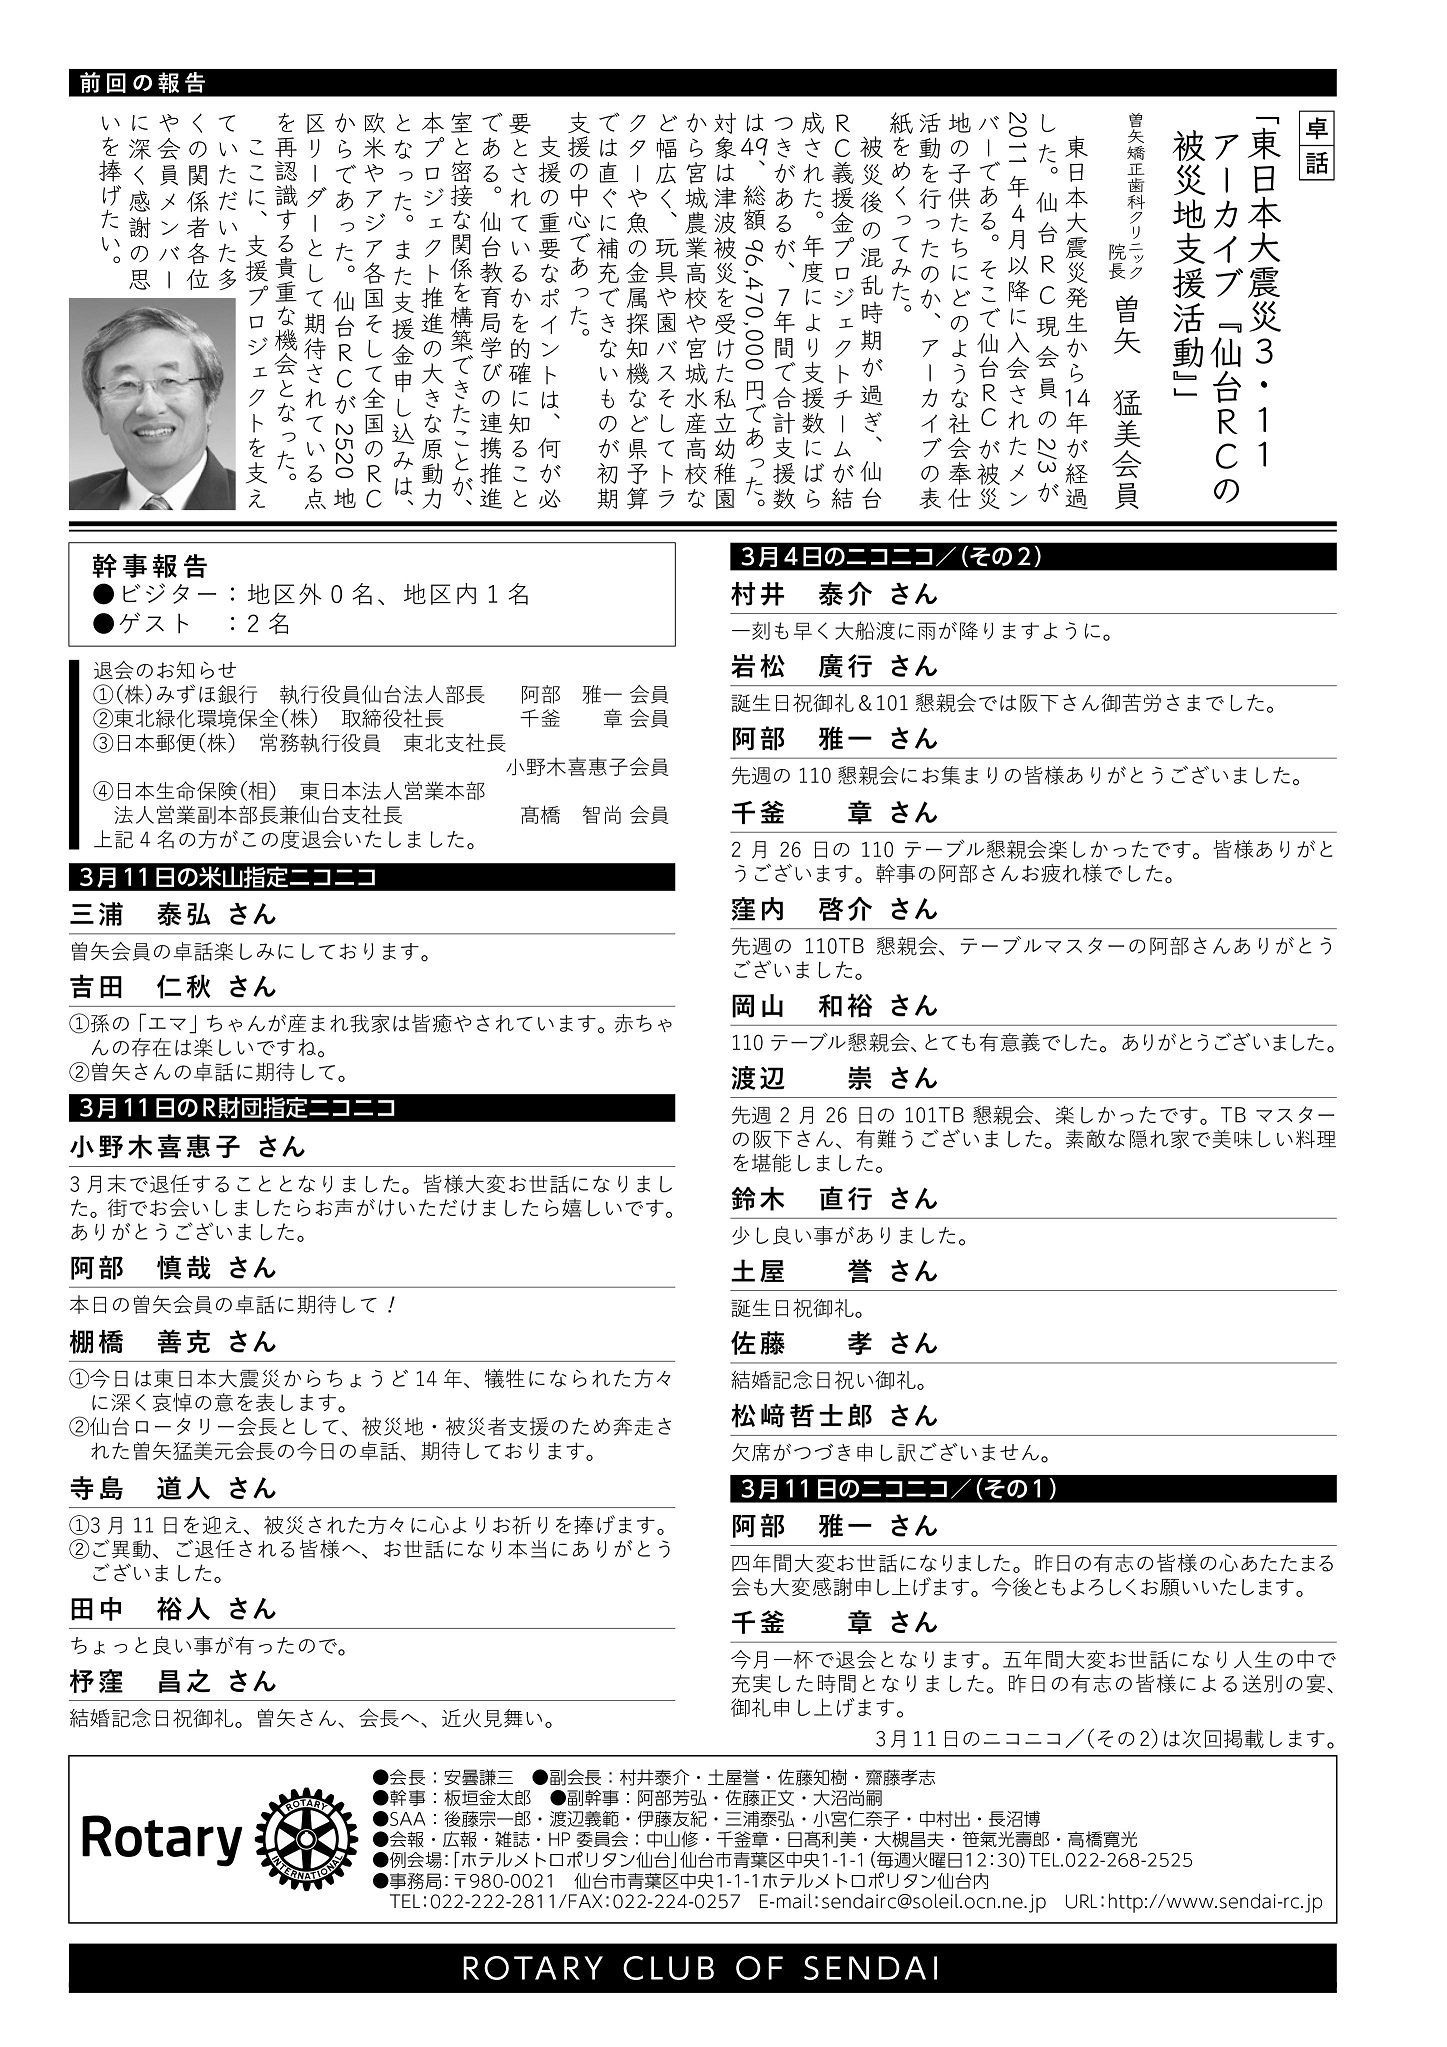 前回の報告
卓話
「東日本大震災３・１１
アーカイブ『仙台ＲＣの
被災地支援活動』」
曽矢矯正歯科クリニック
院長 曽矢　猛美会員
東日本大震災発生から14年が経過
した。仙台ＲＣ現会員の2/3が
2011年４月以降に入会されたメン
バーである。そこで仙台ＲＣが被災
地の子供たちにどのような社会奉仕
活動を行ったのか、アーカイブの表
紙をめくってみた。
被災後の混乱時期が過ぎ、仙台
ＲＣ義援金プロジェクトチームが結
成された。年度により支援数にばら
つきがあるが、７年間で合計支援数
は49、総額96,470,000円であった。
対象は津波被災を受けた私立幼稚園
から宮城農業高校や宮城水産高校な
ど幅広く、玩具や園バスそしてトラ
クターや魚の金属探知機など県予算
では直ぐに補充できないものが初期
支援の中心であった。
支援の重要なポイントは、何が必
要とされているかを的確に知ること
である。仙台教育局学びの連携推進
室と密接な関係を構築できたことが、
本プロジェクト推進の大きな原動力
となった。また支援金申し込みは、
欧米やアジア各国そして全国のＲＣ
からであった。仙台ＲＣが2520地
区リーダーとして期待されている点
を再認識する貴重な機会となった。
ここに、支援プロジェクトを支え
ていただいた多
くの関係者各位
や会員メンバー
に深く感謝の思
いを捧げたい。
幹事報告
●ビジター：地区外０名、地区内１名
●ゲスト　：２名
退会のお知らせ
①(株)みずほ銀行　執行役員仙台法人部長　阿部　雅一 会員
②東北緑化環境保全(株)　取締役社長　千釜　　章 会員
③日本郵便(株)　常務執行役員　東北支社長
小野木喜惠子会員
④日本生命保険(相)　東日本法人営業本部
法人営業副本部長兼仙台支社長　髙橋　智尚 会員
上記４名の方がこの度退会いたしました。
３月11日の米山指定ニコニコ
三浦　泰弘 さん
曽矢会員の卓話楽しみにしております。
吉田　仁秋 さん
①孫の「エマ」ちゃんが産まれ我家は皆癒やされています。赤ちゃ
んの存在は楽しいですね。
②曽矢さんの卓話に期待して。
３月11日のＲ財団指定ニコニコ
小野木喜惠子 さん
３月末で退任することとなりました。皆様大変お世話になりまし
た。街でお会いしましたらお声がけいただけましたら嬉しいです。
ありがとうございました。
阿部　慎哉 さん
本日の曽矢会員の卓話に期待して！
棚橋　善克 さん
①今日は東日本大震災からちょうど14年、犠牲になられた方々
に深く哀悼の意を表します。
②仙台ロータリー会長として、被災地・被災者支援のため奔走さ
れた曽矢猛美元会長の今日の卓話、期待しております。
寺島　道人 さん
①３月11日を迎え、被災された方々に心よりお祈りを捧げます。
②ご異動、ご退任される皆様へ、お世話になり本当にありがとう
ございました。
田中　裕人 さん
ちょっと良い事が有ったので。
杼窪　昌之 さん
結婚記念日祝御礼。曽矢さん、会長へ、近火見舞い。
３月４日のニコニコ／（その２）
村井　泰介 さん
一刻も早く大船渡に雨が降りますように。
岩松　廣行 さん
誕生日祝御礼＆101懇親会では阪下さん御苦労さまでした。
阿部　雅一 さん
先週の110懇親会にお集まりの皆様ありがとうございました。
千釜　　章 さん
２月26日の110テーブル懇親会楽しかったです。皆様ありがと
うございます。幹事の阿部さんお疲れ様でした。
窪内　啓介 さん
先週の110TB懇親会、テーブルマスターの阿部さんありがとう
ございました。
岡山　和裕 さん
110テーブル懇親会、とても有意義でした。ありがとうございました。
渡辺　　崇 さん
先週２月26日の101TB懇親会、楽しかったです。TBマスター
の阪下さん、有難うございました。素敵な隠れ家で美味しい料理
を堪能しました。
鈴木　直行 さん
少し良い事がありました。
土屋　　誉 さん
誕生日祝御礼。
佐藤　　孝 さん
結婚記念日祝い御礼。
松﨑哲士郎 さん
欠席がつづき申し訳ございません。
３月11日のニコニコ／（その１）
阿部　雅一 さん
四年間大変お世話になりました。昨日の有志の皆様の心あたたまる
会も大変感謝申し上げます。今後ともよろしくお願いいたします。
千釜　　章 さん
今月一杯で退会となります。五年間大変お世話になり人生の中で
充実した時間となりました。昨日の有志の皆様による送別の宴、
御礼申し上げます。
３月11日のニコニコ／（その２）は次回掲載します。
Rotary
ROTARY
INTERNATIONAL
●会長：安曇謙三　●副会長：村井泰介・土屋誉・佐藤知樹・齋藤孝志
●幹事：板垣金太郎　●副幹事：阿部芳弘・佐藤正文・大沼尚嗣
●SAA：後藤宗一郎・渡辺義範・伊藤友紀・三浦泰弘・小宮仁奈子・中村出・長沼博
●会報・広報・雑誌・HP委員会：中山修・千釜章・日髙利美・大槻昌夫・笹氣光壽郎・高橋寛光
●例会場：「ホテルメトロポリタン仙台」仙台市青葉区中央1-1-1（毎週火曜日12：30）TEL.022-268-2525
●事務局：〒980-0021　仙台市青葉区中央1-1-1ホテルメトロポリタン仙台内
TEL：022-222-2811/FAX：022-224-0257　E-mail：sendairc@soleil.ocn.ne.jp　URL：http://www.sendai-rc.jp
ROTARY CLUB OF SENDAI